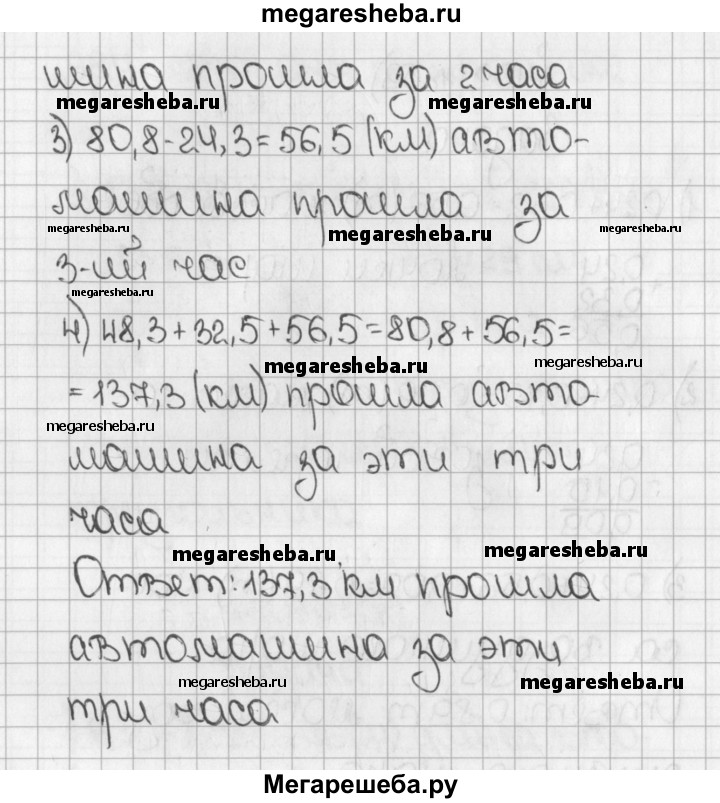 megaresheba.ru
шина прошла за 2 часа
megaresheba.ru megaresheba.ru
3) 80,8-24,3=56,5 (км) авто-
машина прошла за
megaresheba.ru megaresheba.ru megaresheba.ru
3-ий час
megaresheba.ru
4) 48,3+32,5+56,5=80,8+56,5=
megaresheba.ru megaresheba.ru
=137,3 (км) прошла авто-
megaresheba.ru
машина за эти три
часа
megaresheba.ru megaresheba.ru
Ответ: 137,3 км прошла
автомашина за эти
megaresheba.ru megaresheba.ru
три часа
Мегарешеба.ру